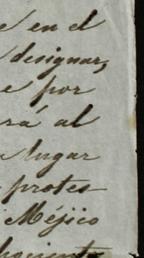 e en el
designar,
e por
rá al
lugar
protes
Méjico